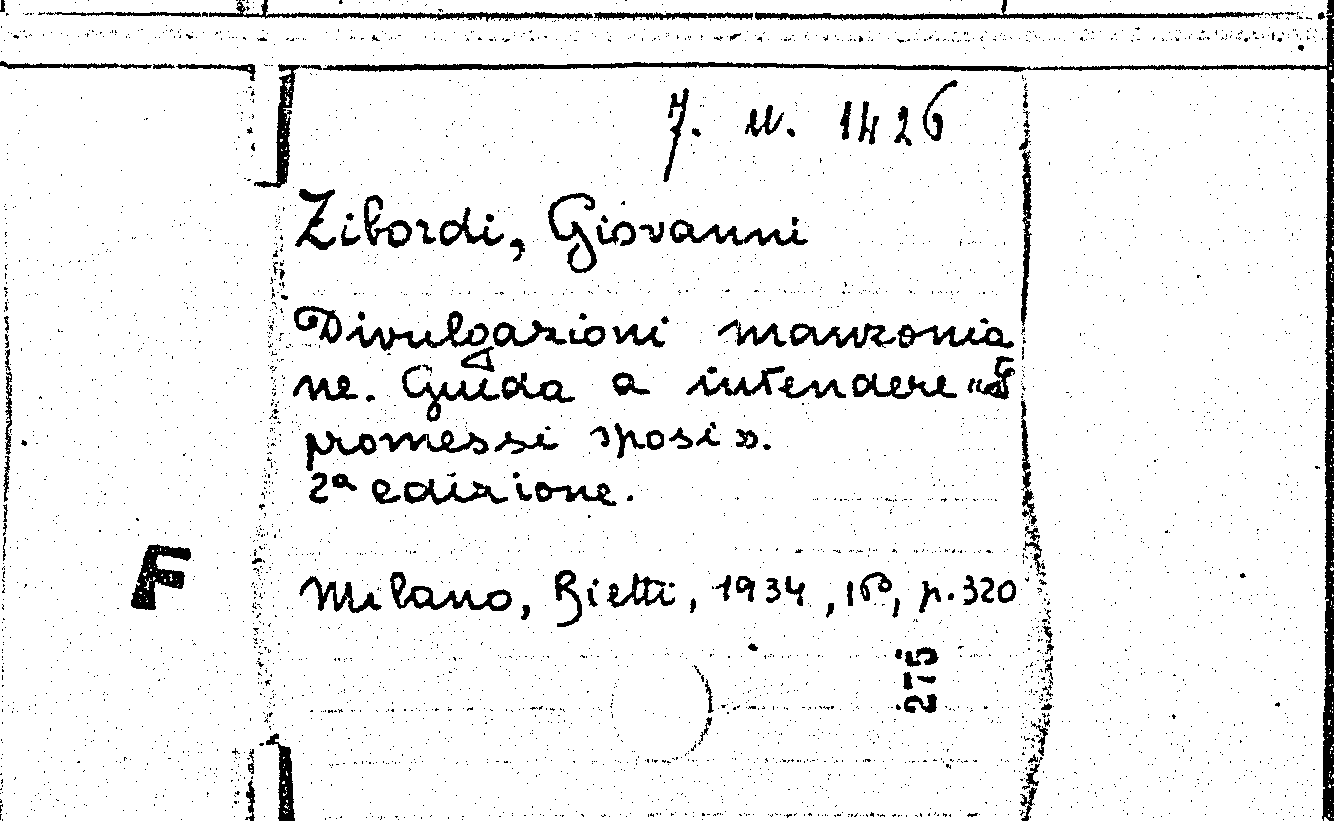 7. u. 1426
Zibordi, Giovanni
Divulgazioni manzonia
ne. Guida a intendere "I
promessi sposi".
2ª edizione.
F
Milano, Bietti, 1934, 16°, p. 320
275